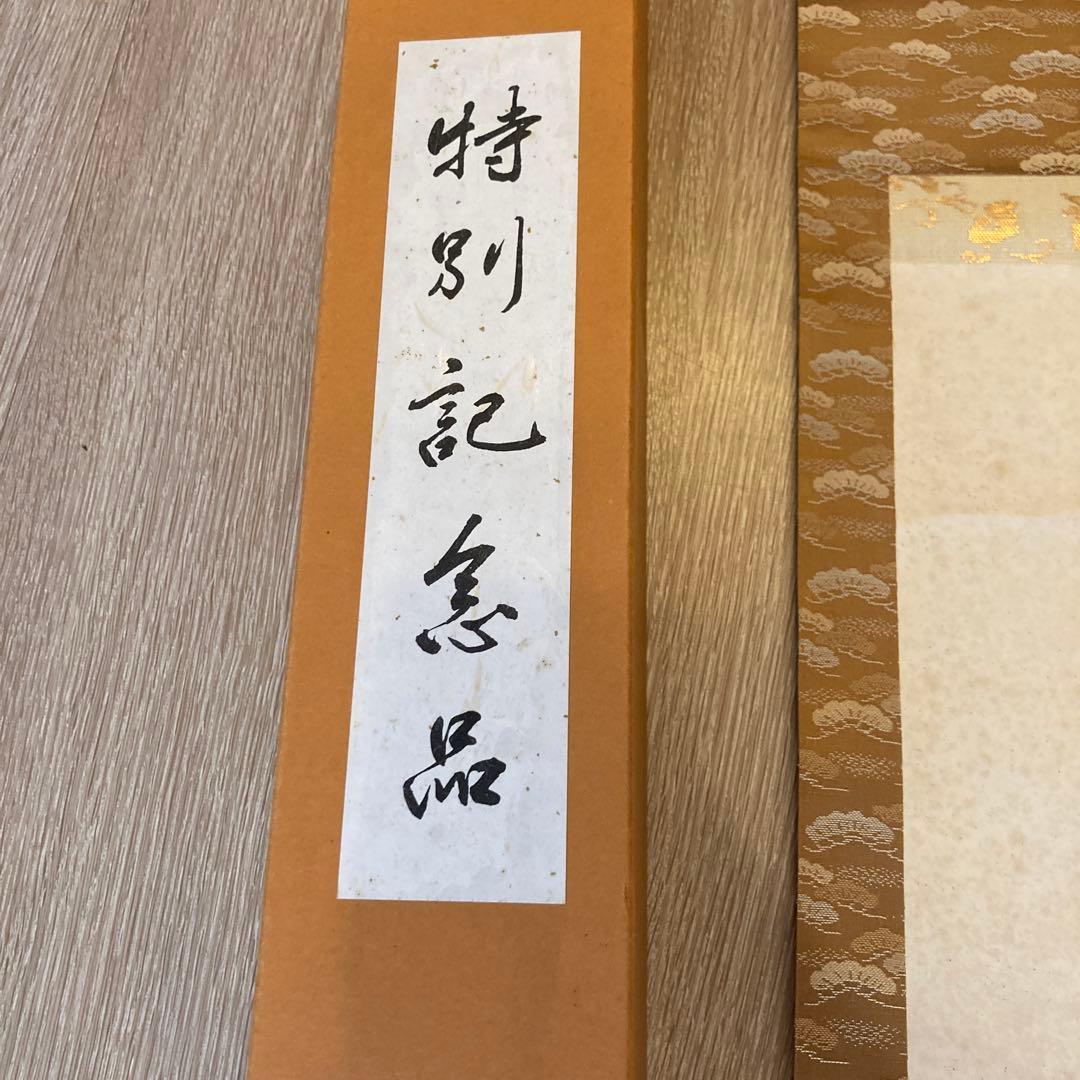 特別記念品